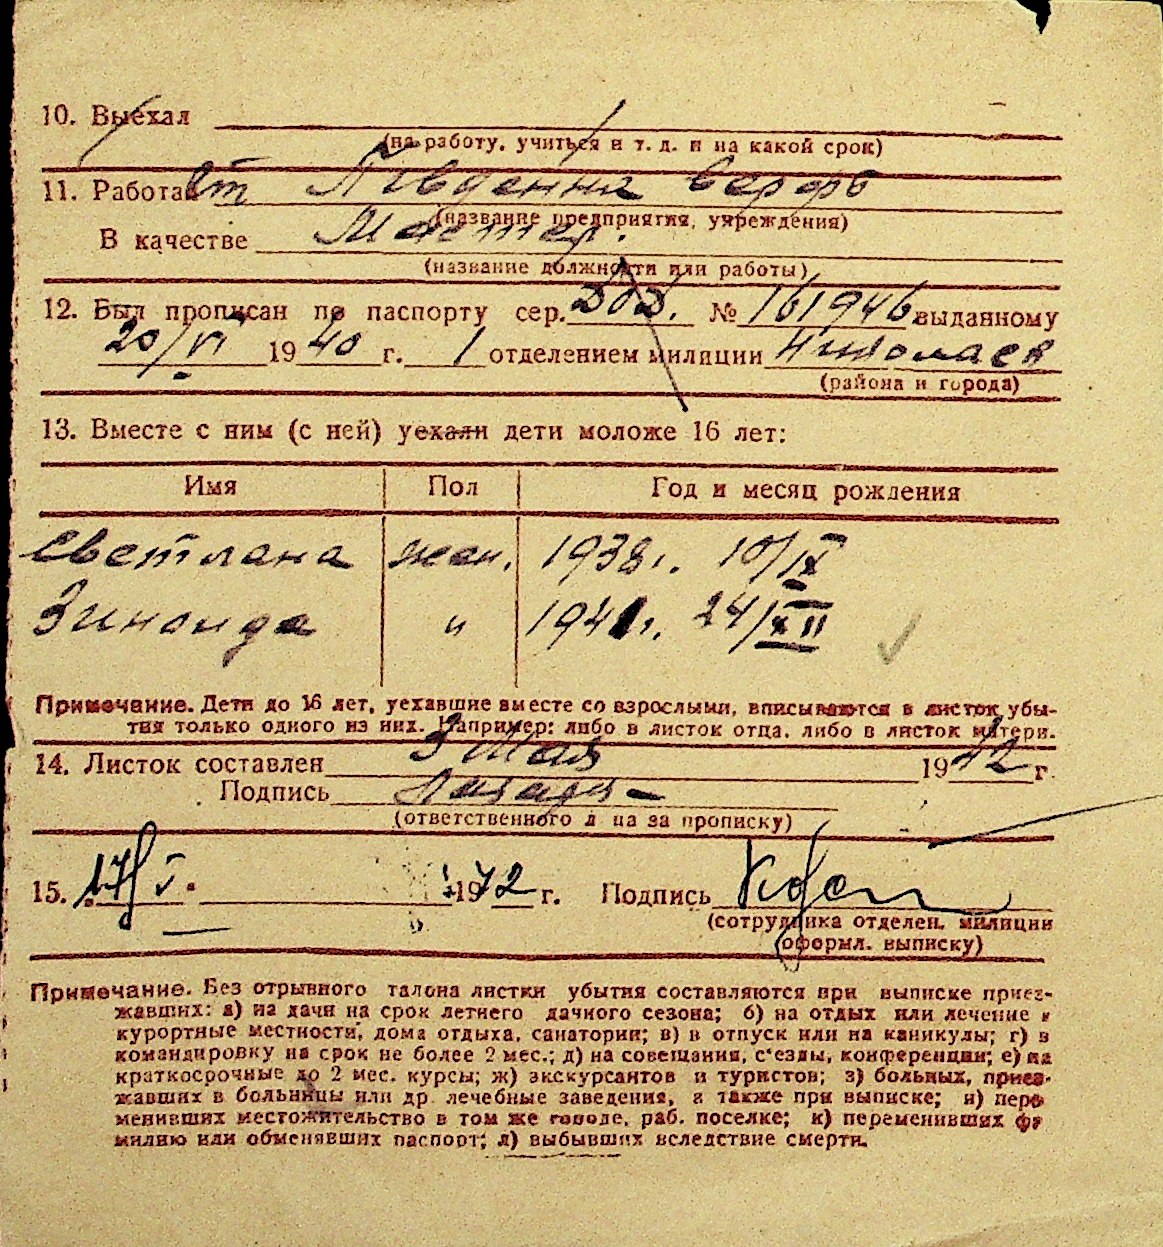 10. Выехал
(на работу, учиться и т. д. и на какой срок)
11. Работает Південна верфь
(название предприятия, учреждения)
В качестве Мастер.
(название должности или работы)
12. Был прописан по паспорту сер. № 161946 выданному
20/VI 1940 г. 1 отделением милиции Николаев
(района и города)
13. Вместе с ним (с ней) уехали дети моложе 16 лет:
Имя Пол Год и месяц рождения
Светлана жен. 1938 г. 10/IX
Зинаида " 1941 г. 24/XII
Примечание. Дети до 16 лет, уехавшие вместе со взрослыми, вписываются в листок убы-
тия только одного из них. Например: либо в листок отца, либо в листок матери.
14. Листок составлен 3 Мая 1942 г.
Подпись
(ответственного л на за прописку)
15. 17/V. 1942 г. Подпись
(сотрудника отделен. милиции
оформл. выписку)
Примечание. Без отрывного талона листки убытия составляются при выписке приез-
жавших: а) на дачи на срок летнего дачного сезона; б) на отдых или лечение в
курортные местности, дома отдыха, санатории; в) в отпуск или на каникулы; г) в
командировку на срок не более 2 мес.; д) на совещания, с'езды, конференции; е) на
краткосрочные до 2 мес. курсы; ж) экскурсантов и туристов; з) больных, приез-
жавших в больницы или др. лечебные заведения, а также при выписке; и) пере
менивших местожительство в том же городе, раб. поселке; к) переменивших фа
милию или обменявших паспорт; л) выбывших вследствие смерти.